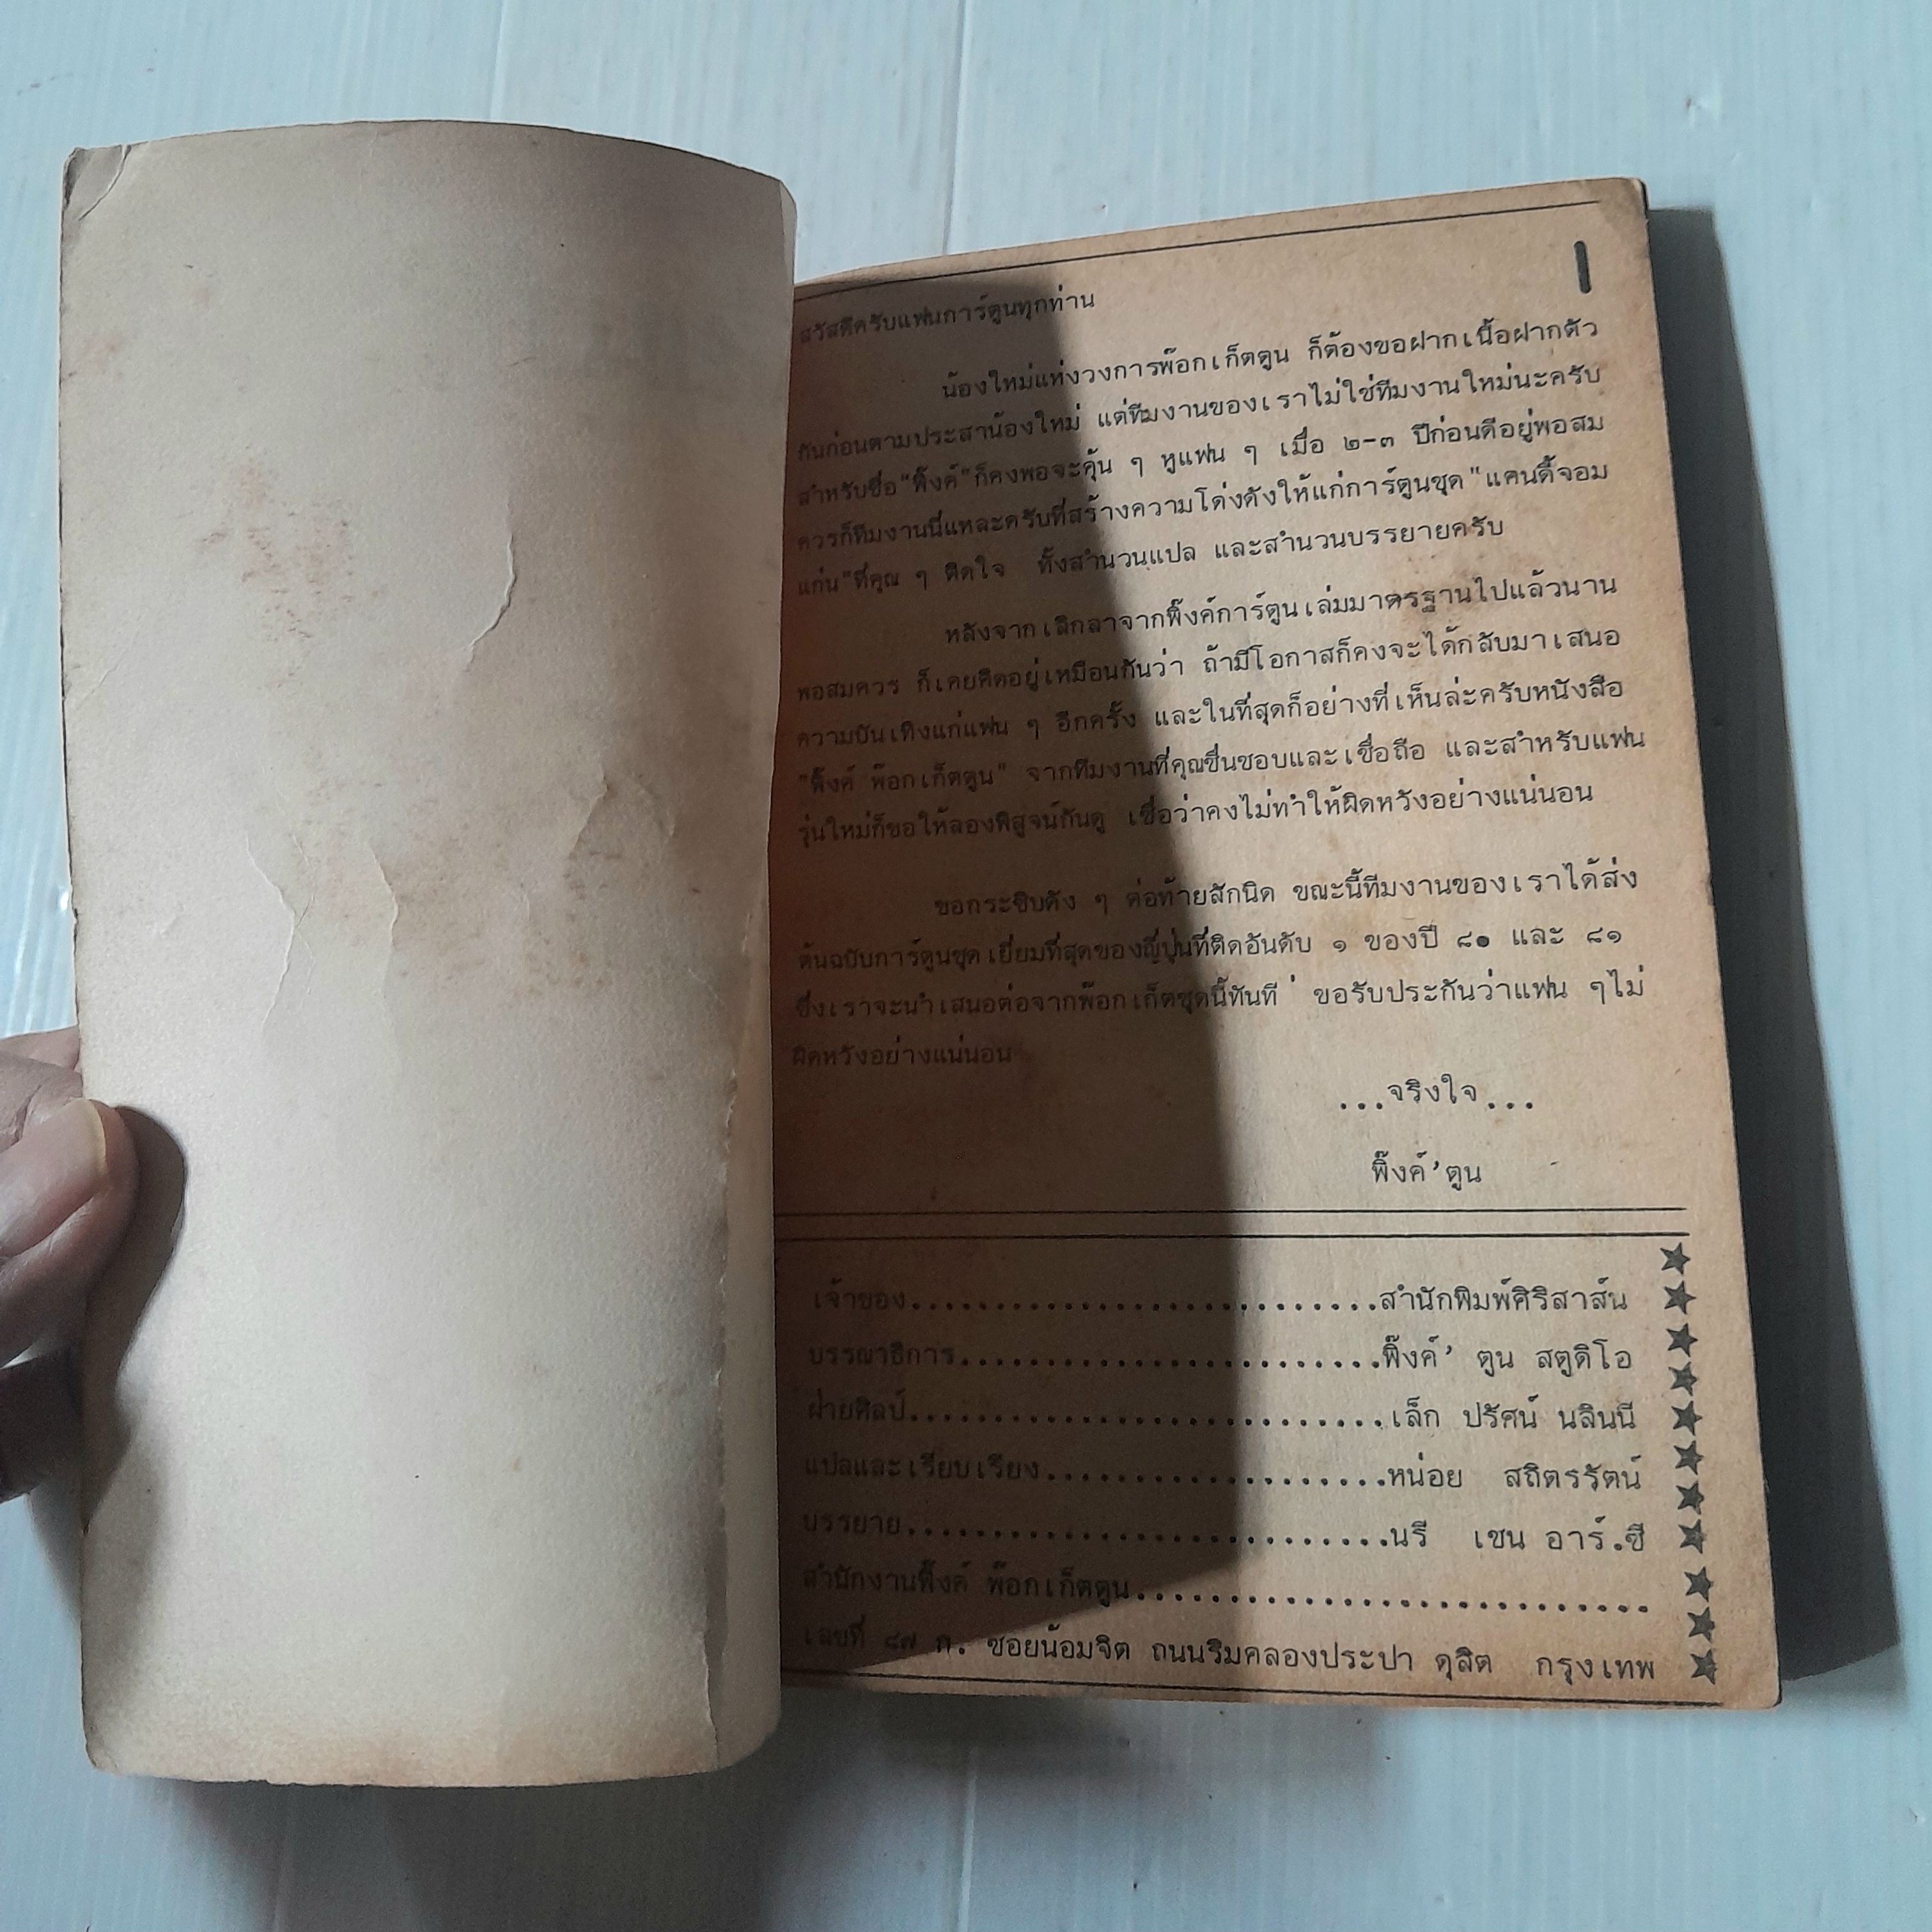 สวัสดีครับแฟนการ์ตูนทุกท่าน
น้องใหม่แห่งวงการพ๊อกเก็ตตูน ก็ต้องขอฝากเนื้อฝากตัว
กันก่อนตามประสาน้องใหม่ แต่ทีมงานของเราไม่ใช่ทีมงานใหม่นะครับ
สำหรับชื่อ"พิ๊งค์"ก็คงพอจะคุ้น ๆ หูแฟน ๆ เมื่อ ๒-๓ ปีก่อนดีอยู่พอสม
ควรก็ทีมงานนี่แหละครับที่สร้างความโด่งดังให้แก่การ์ตูนชุด"แคนดี้จอม
แก่น"ที่คุณ ๆ ติดใจ ทั้งสำนวนแปล และสำนวนบรรยายครับ
หลังจากเลิกลาจากพิ๊งค์การ์ตูนเล่มมาตรฐานไปแล้วนาน
พอสมควร ก็เคยคิดอยู่เหมือนกันว่า ถ้ามีโอกาสก็คงจะได้กลับมาเสนอ
ความบันเทิงแก่แฟน ๆ อีกครั้ง และในที่สุดก็อย่างที่เห็นล่ะครับหนังสือ
"พิ๊งค์ พ๊อกเก็ตตูน" จากทีมงานที่คุณชื่นชอบและเชื่อถือ และสำหรับแฟน
รุ่นใหม่ก็ขอให้ลองพิสูจน์กันดู เชื่อว่าคงไม่ทำให้ผิดหวังอย่างแน่นอน
ขอกระซิบดัง ๆ ต่อท้ายสักนิด ขณะนี้ทีมงานของเราได้ส่ง
ต้นฉบับการ์ตูนชุดเยี่ยมที่สุดของญี่ปุ่นที่ติดอันดับ ๑ ของปี ๘๐ และ ๘๑
ซึ่งเราจะนำเสนอต่อจากพ๊อกเก็ตชุดนี้ทันที ขอรับประกันว่าแฟน ๆไม่
ผิดหวังอย่างแน่นอน
...จริงใจ...
พิ๊งค์'ตูน
เจ้าของ............................สำนักพิมพ์ศิริสาส์น
บรรณาธิการ.........................พิ๊งค์' ตูน สตูดิโอ
ฝ่ายศิลป์............................เล็ก ปรัศน์ นลินนี
แปลและเรียบเรียง....................หน่อย สถิตรรัตน์
บรรยาย............................นรี เชน อาร์.ซี
สำนักงานพิ๊งค์ พ๊อกเก็ตตูน............................
เลขที่ ๘๗ ก. ซอยน้อมจิต ถนนริมคลองประปา ดุสิต กรุงเทพ